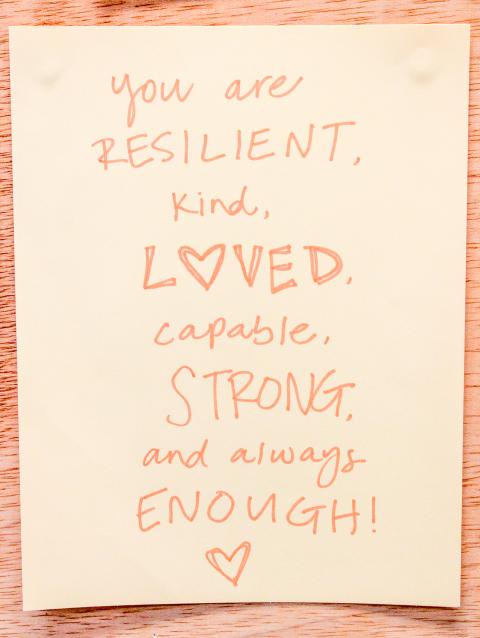 you are
RESILIENT,
kind,
L♡VED,
capable,
STRONG,
and always
ENOUGH!
♡